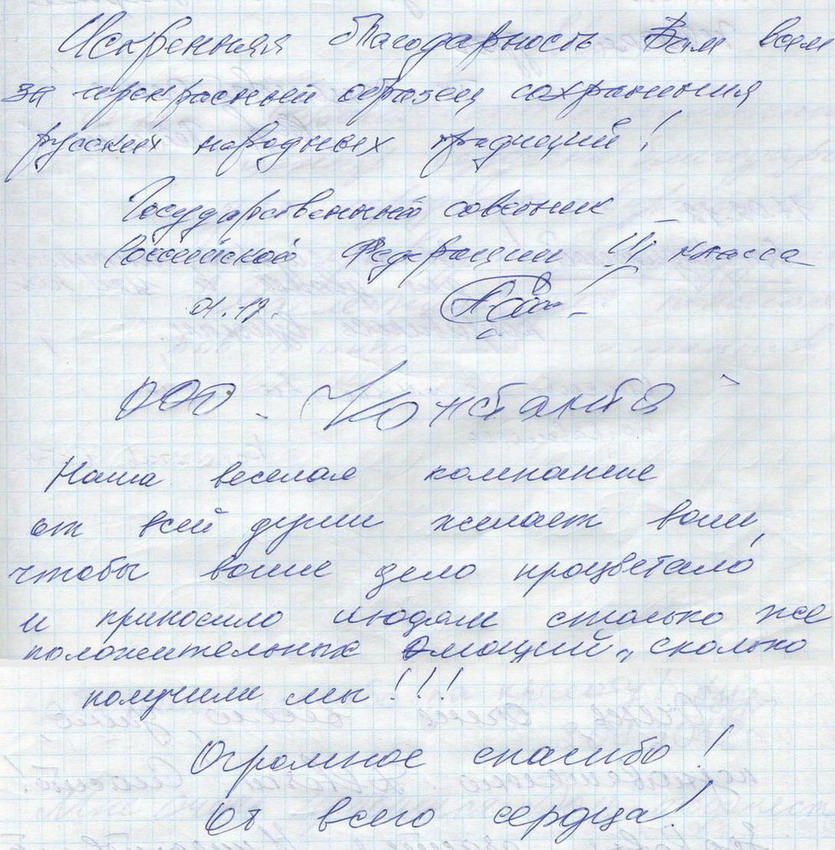 Искренняя благодарность Вам всем
за прекрасный образец сохранения
русских народных традиций!
Государственный советник
Российской Федерации III класса
01.17.
ООО - Константа"
Наша веселая компание
от всей души желает вам,
чтобы ваше дело процветало
и приносило людям столько же
положительных эмоций, сколько
получили мы!!!
Огромное спасибо!
От всего сердца!